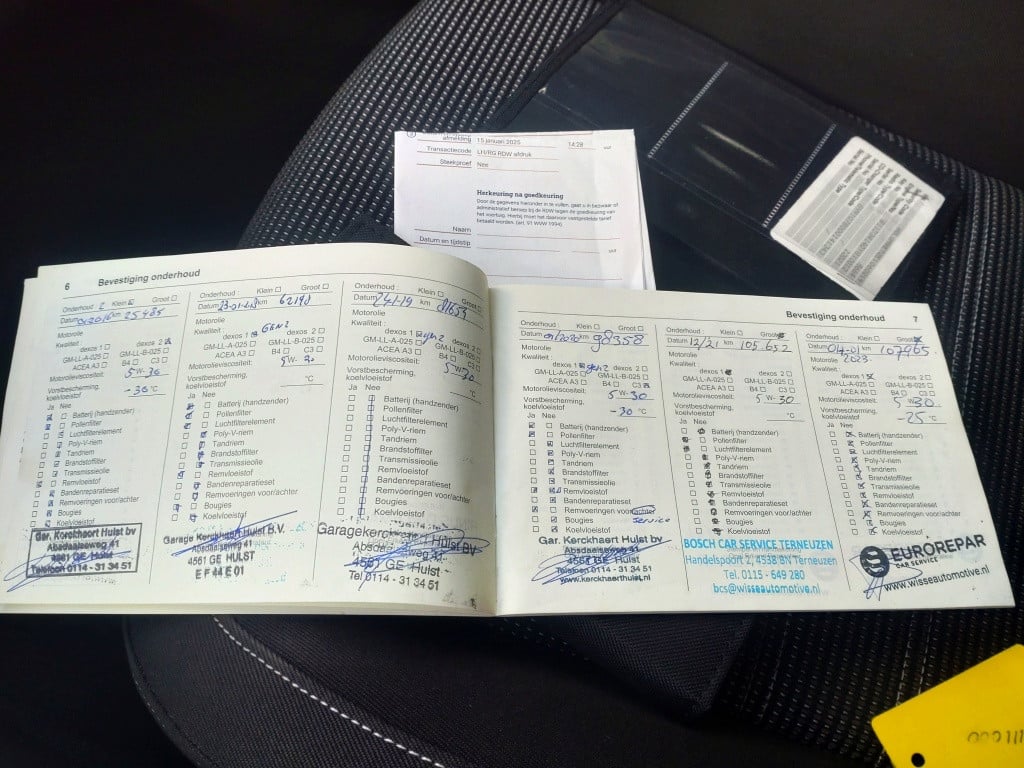 afmelding 15 januari 2025 14:28 uur
Transactiecode LH/RG RDW afdruk
Steekproef Nee
Herkeuring na goedkeuring
Door de gegevens hieronder in te vullen, gaat u in bezwaar of
administratief beroep bij de RDW tegen de goedkeuring van
het voertuig. Hierbij moet het daarvoor vastgestelde tarief
betaald worden. (art. 91 WVW 1994)
Naam
Datum en tijdstip uur
6 Bevestiging onderhoud
Onderhoud : 2 Klein Groot
Datum km 25485
Motorolie
Kwaliteit :
dexos 1 dexos 2
GM-LL-A-025 GM-LL-B-025
ACEA A3 B4 C3
Motorolieviscositeit: 5 W-30
Vorstbescherming,
koelvloeistof -30 °C
Ja Nee
Batterij (handzender)
Pollenfilter
Luchtfilterelement
Poly-V-riem
Tandriem
Brandstoffilter
Transmissieolie
Remvloeistof
Bandenreparatieset
Remvoeringen voor/achter
Bougies
Koelvloeistof
Gar. Kerckhaert Hulst bv
Absdaalseweg 41
4561 GE Hulst
Telefoon 0114 - 31 34 51
Onderhoud : Klein Groot
Datum km 62198
Motorolie
Kwaliteit : GEN2
dexos 1 dexos 2
GM-LL-A-025 GM-LL-B-025
ACEA A3 B4 C3
Motorolieviscositeit: 5 W-30
Vorstbescherming,
koelvloeistof °C
Ja Nee
Batterij (handzender)
Pollenfilter
Luchtfilterelement
Poly-V-riem
Tandriem
Brandstoffilter
Transmissieolie
Remvloeistof
Bandenreparatieset
Remvoeringen voor/achter
Bougies
Koelvloeistof
Garage Kerckhaert Hulst B.V.
Absdaalseweg 41
4561 GE HULST
Onderhoud : Klein Groot
Datum 24-1-19 km 81659
Motorolie
Kwaliteit :
dexos 1 gen2 dexos 2
GM-LL-A-025 GM-LL-B-025
ACEA A3 B4 C3
Motorolieviscositeit: 5 W-30
Vorstbescherming,
koelvloeistof °C
Ja Nee
Batterij (handzender)
Pollenfilter
Luchtfilterelement
Poly-V-riem
Tandriem
Brandstoffilter
Transmissieolie
Remvloeistof
Bandenreparatieset
Remvoeringen voor/achter
Bougies
Koelvloeistof
Garagekerckhaert Hulst BV
Absdaalseweg 41
4561 GE Hulst
Tel 0114 - 31 34 51
Bevestiging onderhoud 7
Onderhoud : Klein Groot
Datum 01/2020 km 98358
Motorolie
Kwaliteit :
dexos 1 gen2 dexos 2
GM-LL-A-025 GM-LL-B-025
ACEA A3 B4 C3
Motorolieviscositeit: 5 W-30
Vorstbescherming,
koelvloeistof -30 °C
Ja Nee
Batterij (handzender)
Pollenfilter
Luchtfilterelement
Poly-V-riem
Tandriem
Brandstoffilter
Transmissieolie
Remvloeistof
Bandenreparatieset
Remvoeringen voor/achter
Bougies service
Koelvloeistof
Gar. Kerckhaert Hulst bv
Absdaalseweg 41
4561 GE Hulst
Telefoon 0114 - 31 34 51
www.kerckhaerthulst.nl
Onderhoud : Klein Groot
Datum 12/21 km 105.652
Motorolie
Kwaliteit :
dexos 1 dexos 2
GM-LL-A-025 GM-LL-B-025
ACEA A3 B4 C3
Motorolieviscositeit: 5 W-30
Vorstbescherming,
koelvloeistof °C
Ja Nee
Batterij (handzender)
Pollenfilter
Luchtfilterelement
Poly-V-riem
Tandriem
Brandstoffilter
Transmissieolie
Remvloeistof
Bandenreparatieset
Remvoeringen voor/achter
Bougies
Koelvloeistof
BOSCH CAR SERVICE TERNEUZEN
Handelspoort 2, 4538 BN Terneuzen
Tel. 0115 - 649 280
bcs@wisseautomotive.nl
Onderhoud : Klein Groot
Datum 04-01 km 107965
Motorolie 2023
Kwaliteit :
dexos 1 dexos 2
GM-LL-A-025 GM-LL-B-025
ACEA A3 B4 C3
Motorolieviscositeit: 5 W-30
Vorstbescherming,
koelvloeistof -25 °C
Ja Nee
Batterij (handzender)
Pollenfilter
Luchtfilterelement
Poly-V-riem
Tandriem
Brandstoffilter
Transmissieolie
Remvloeistof
Bandenreparatieset
Remvoeringen voor/achter
Bougies
Koelvloeistof
EUROREPAR
CAR SERVICE
www.wisseautomotive.nl